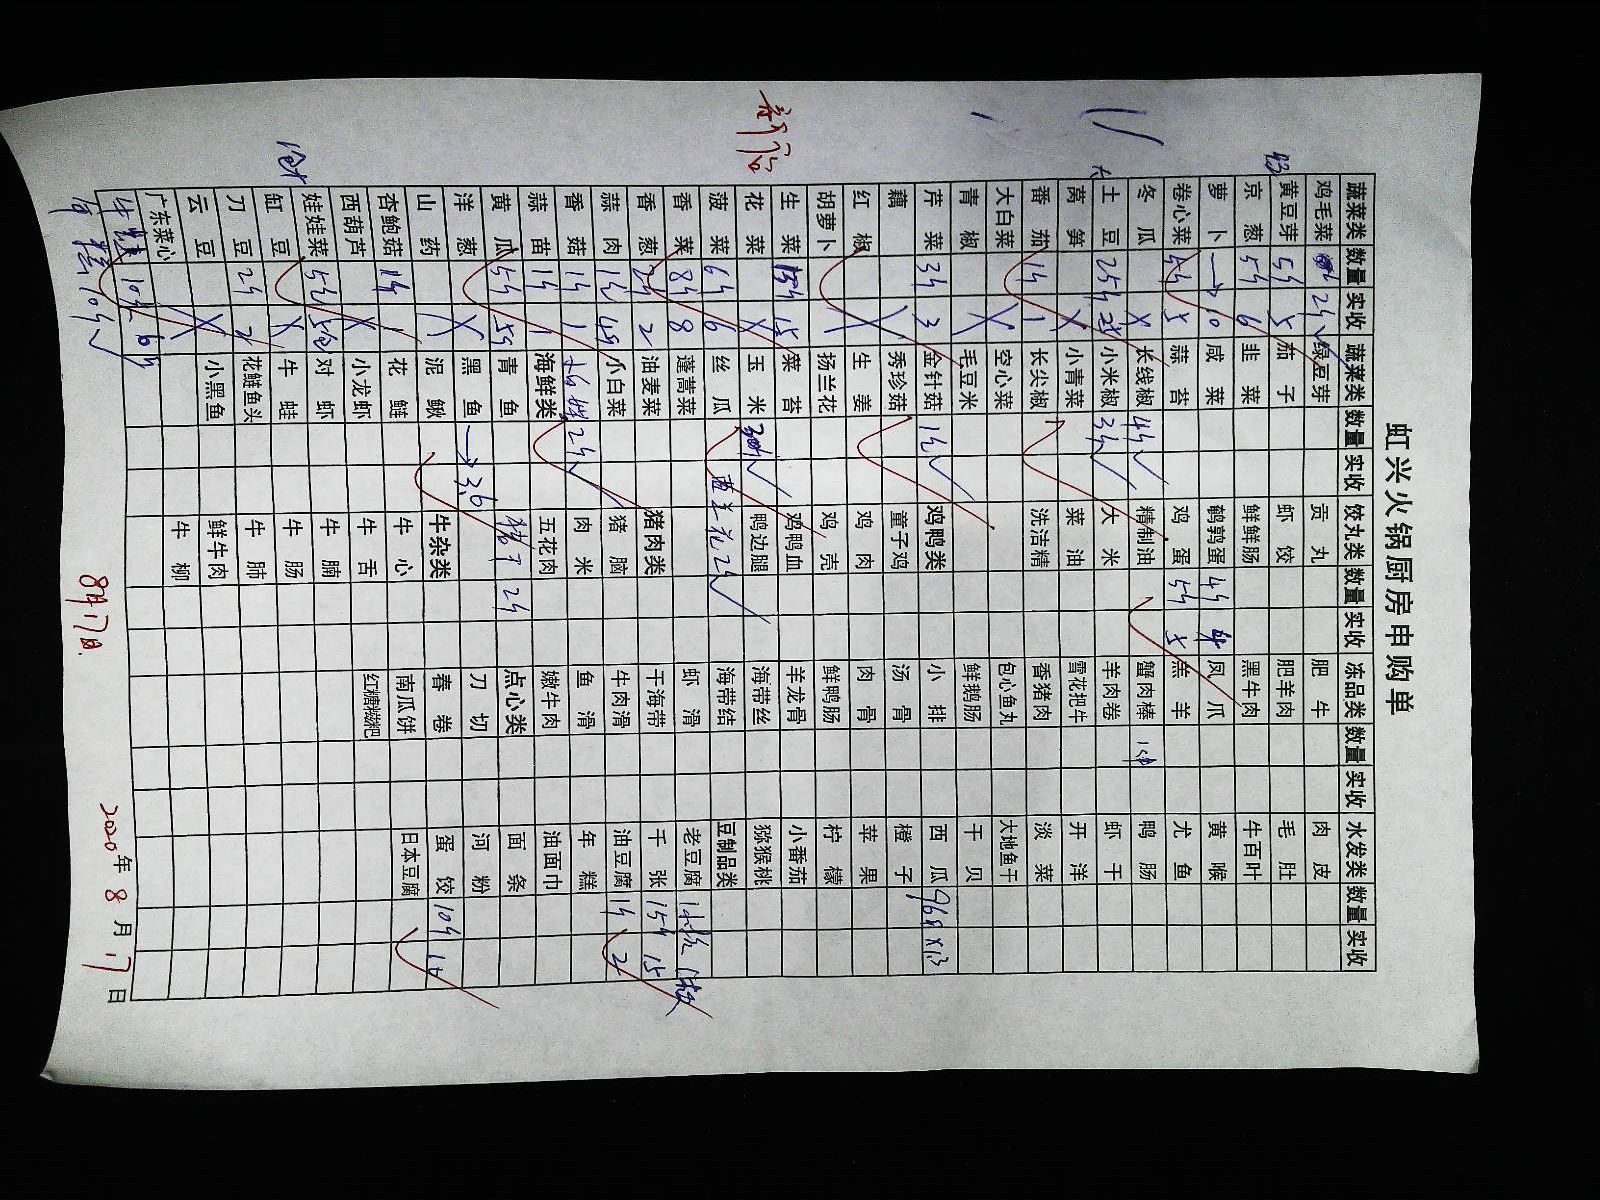 虹兴火锅厨房申购单
蔬菜类 数量 实收 蔬菜类 数量 实收 饺丸类 数量 实收 冻品类 数量 实收 水发类 数量 实收
鸡毛菜 2斤 绿豆芽 贡丸 肥牛 肉皮
黄豆芽 5斤 5 茄子 虾饺 肥羊肉 毛肚
京葱 5斤 6 韭菜 鲜鲜肠 黑牛肉 牛百叶
萝卜 → 10 咸菜 鹌鹑蛋 4斤 4 凤爪 黄喉
卷心菜 5斤 5 蒜苔 鸡蛋 5斤 5 羔羊 尤鱼
冬瓜 X 长线椒 4斤 精制油 蟹肉棒 鸭肠
土豆 25斤 25 小米椒 3斤 大米 羊肉卷 虾干
莴笋 X 小青菜 菜油 雪花把牛 开洋
番茄 1斤 1 长尖椒 洗洁精 香猪肉 淡菜
大白菜 空心菜 包心鱼丸 大地鱼干
青椒 X 毛豆米 鲜鹅肠 干贝
芹菜 3斤 3 金针菇 1斤 鸡鸭类 小排 西瓜
藕 秀珍菇 童子鸡 汤骨 橙子
红椒 生姜 鸡肉 肉骨 苹果
胡萝卜 1 扬兰花 鸡壳 鲜鸭肠 柠檬
生菜 15 菜苔 鸡鸭血 羊龙骨 小番茄
花菜 X 玉米 鸭边腿 海带丝 猕猴桃
菠菜 6斤 6 丝瓜 西兰花 2斤 海带结 豆制品类
香菜 8斤 8 蓬蒿菜 虾滑 老豆腐
香葱 2斤 2 油麦菜 猪肉类 干海带 千张 15斤 15
蒜肉 1斤 小白菜 猪脑 牛肉滑 油豆腐 1斤 2
香菇 1斤 1 2斤 肉米 鱼滑 年糕
蒜苗 1斤 1 海鲜类 五花肉 嫩牛肉 油面巾
黄瓜 5斤 青鱼 猪肝 2斤 点心类 面条
洋葱 X 黑鱼 → 3.6 刀切 河粉
山药 泥鳅 牛杂类 春卷 蛋饺 10斤
杏鲍菇 1斤 1 花鲢 牛心 南瓜饼 日本豆腐
西葫芦 X 小龙虾 牛舌 红糖糍粑
娃娃菜 对虾 牛腩
缸豆 X 牛蛙 牛肠
刀豆 2斤 2 花鲢鱼头 牛肺
云豆 X 小黑鱼 鲜牛肉
广东菜心 牛柳
8月17日
2020年8月17日